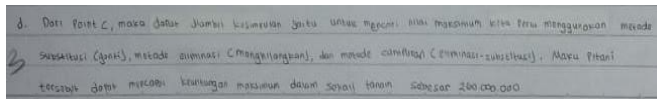 d. Dari Point C, maka dapat diambil kesimpulan yaitu untuk mencari nilai maksimum kita perlu menggunakan metode
3 substitusi (ganti), metode eliminasi (menghilangkan), dan metode campuran (eliminasi-substitusi). Maka Petani
tersebut dapat mencapai keuntungan maksimum dalam sekali tanam sebesar 200.000.000